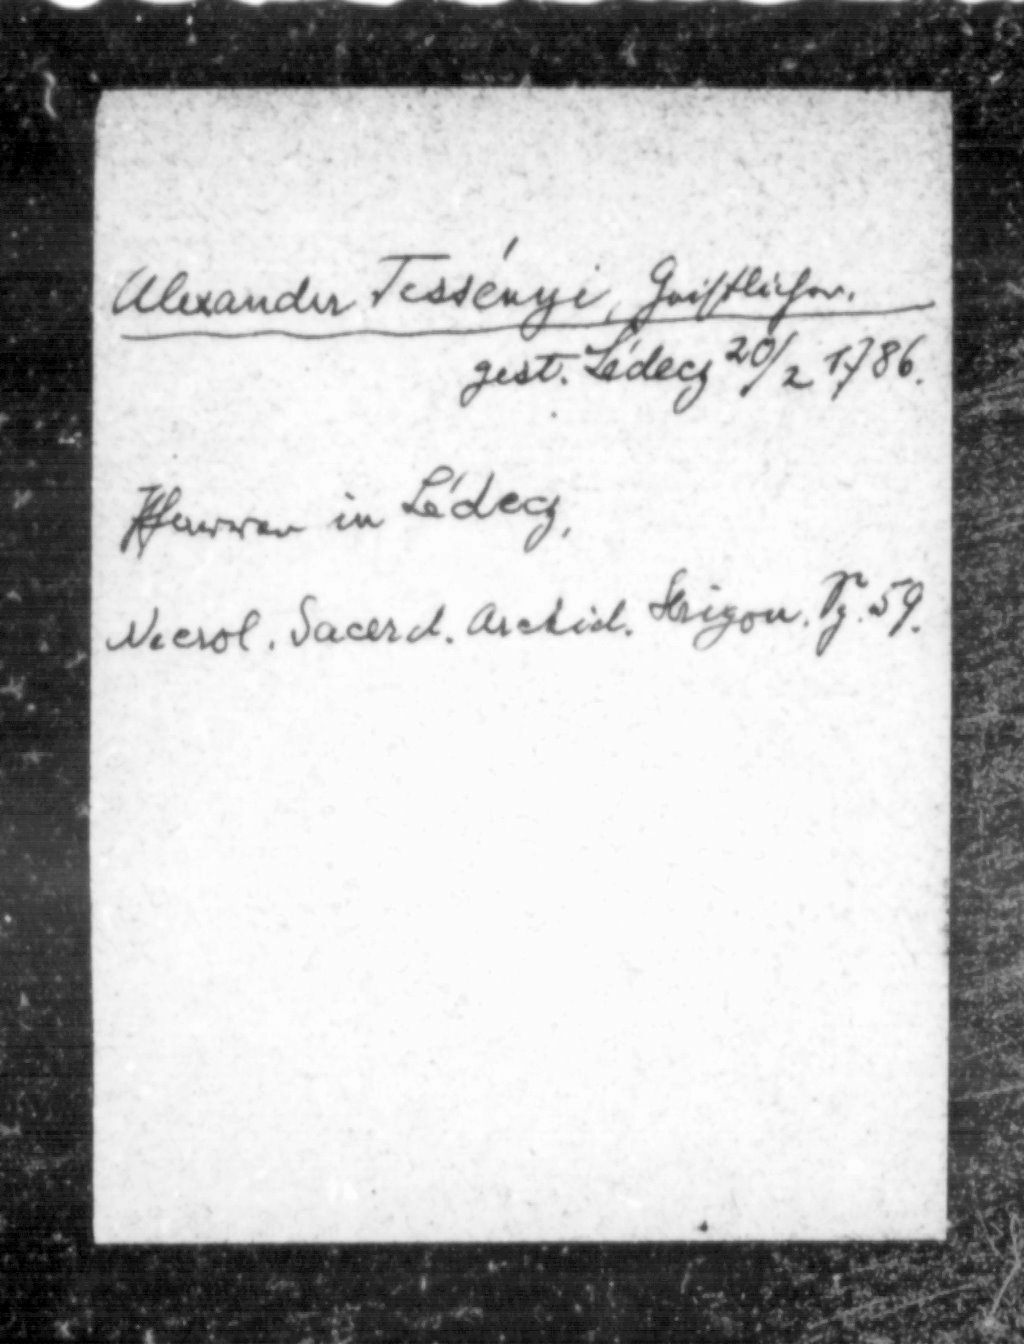 Alexander Tessényi, Geistlicher.
gest. Lédecz 20/2 1786.
Pfarrer in Lédecz,
Necrol. Sacerd. Archid. Strigon. Pg. 59.